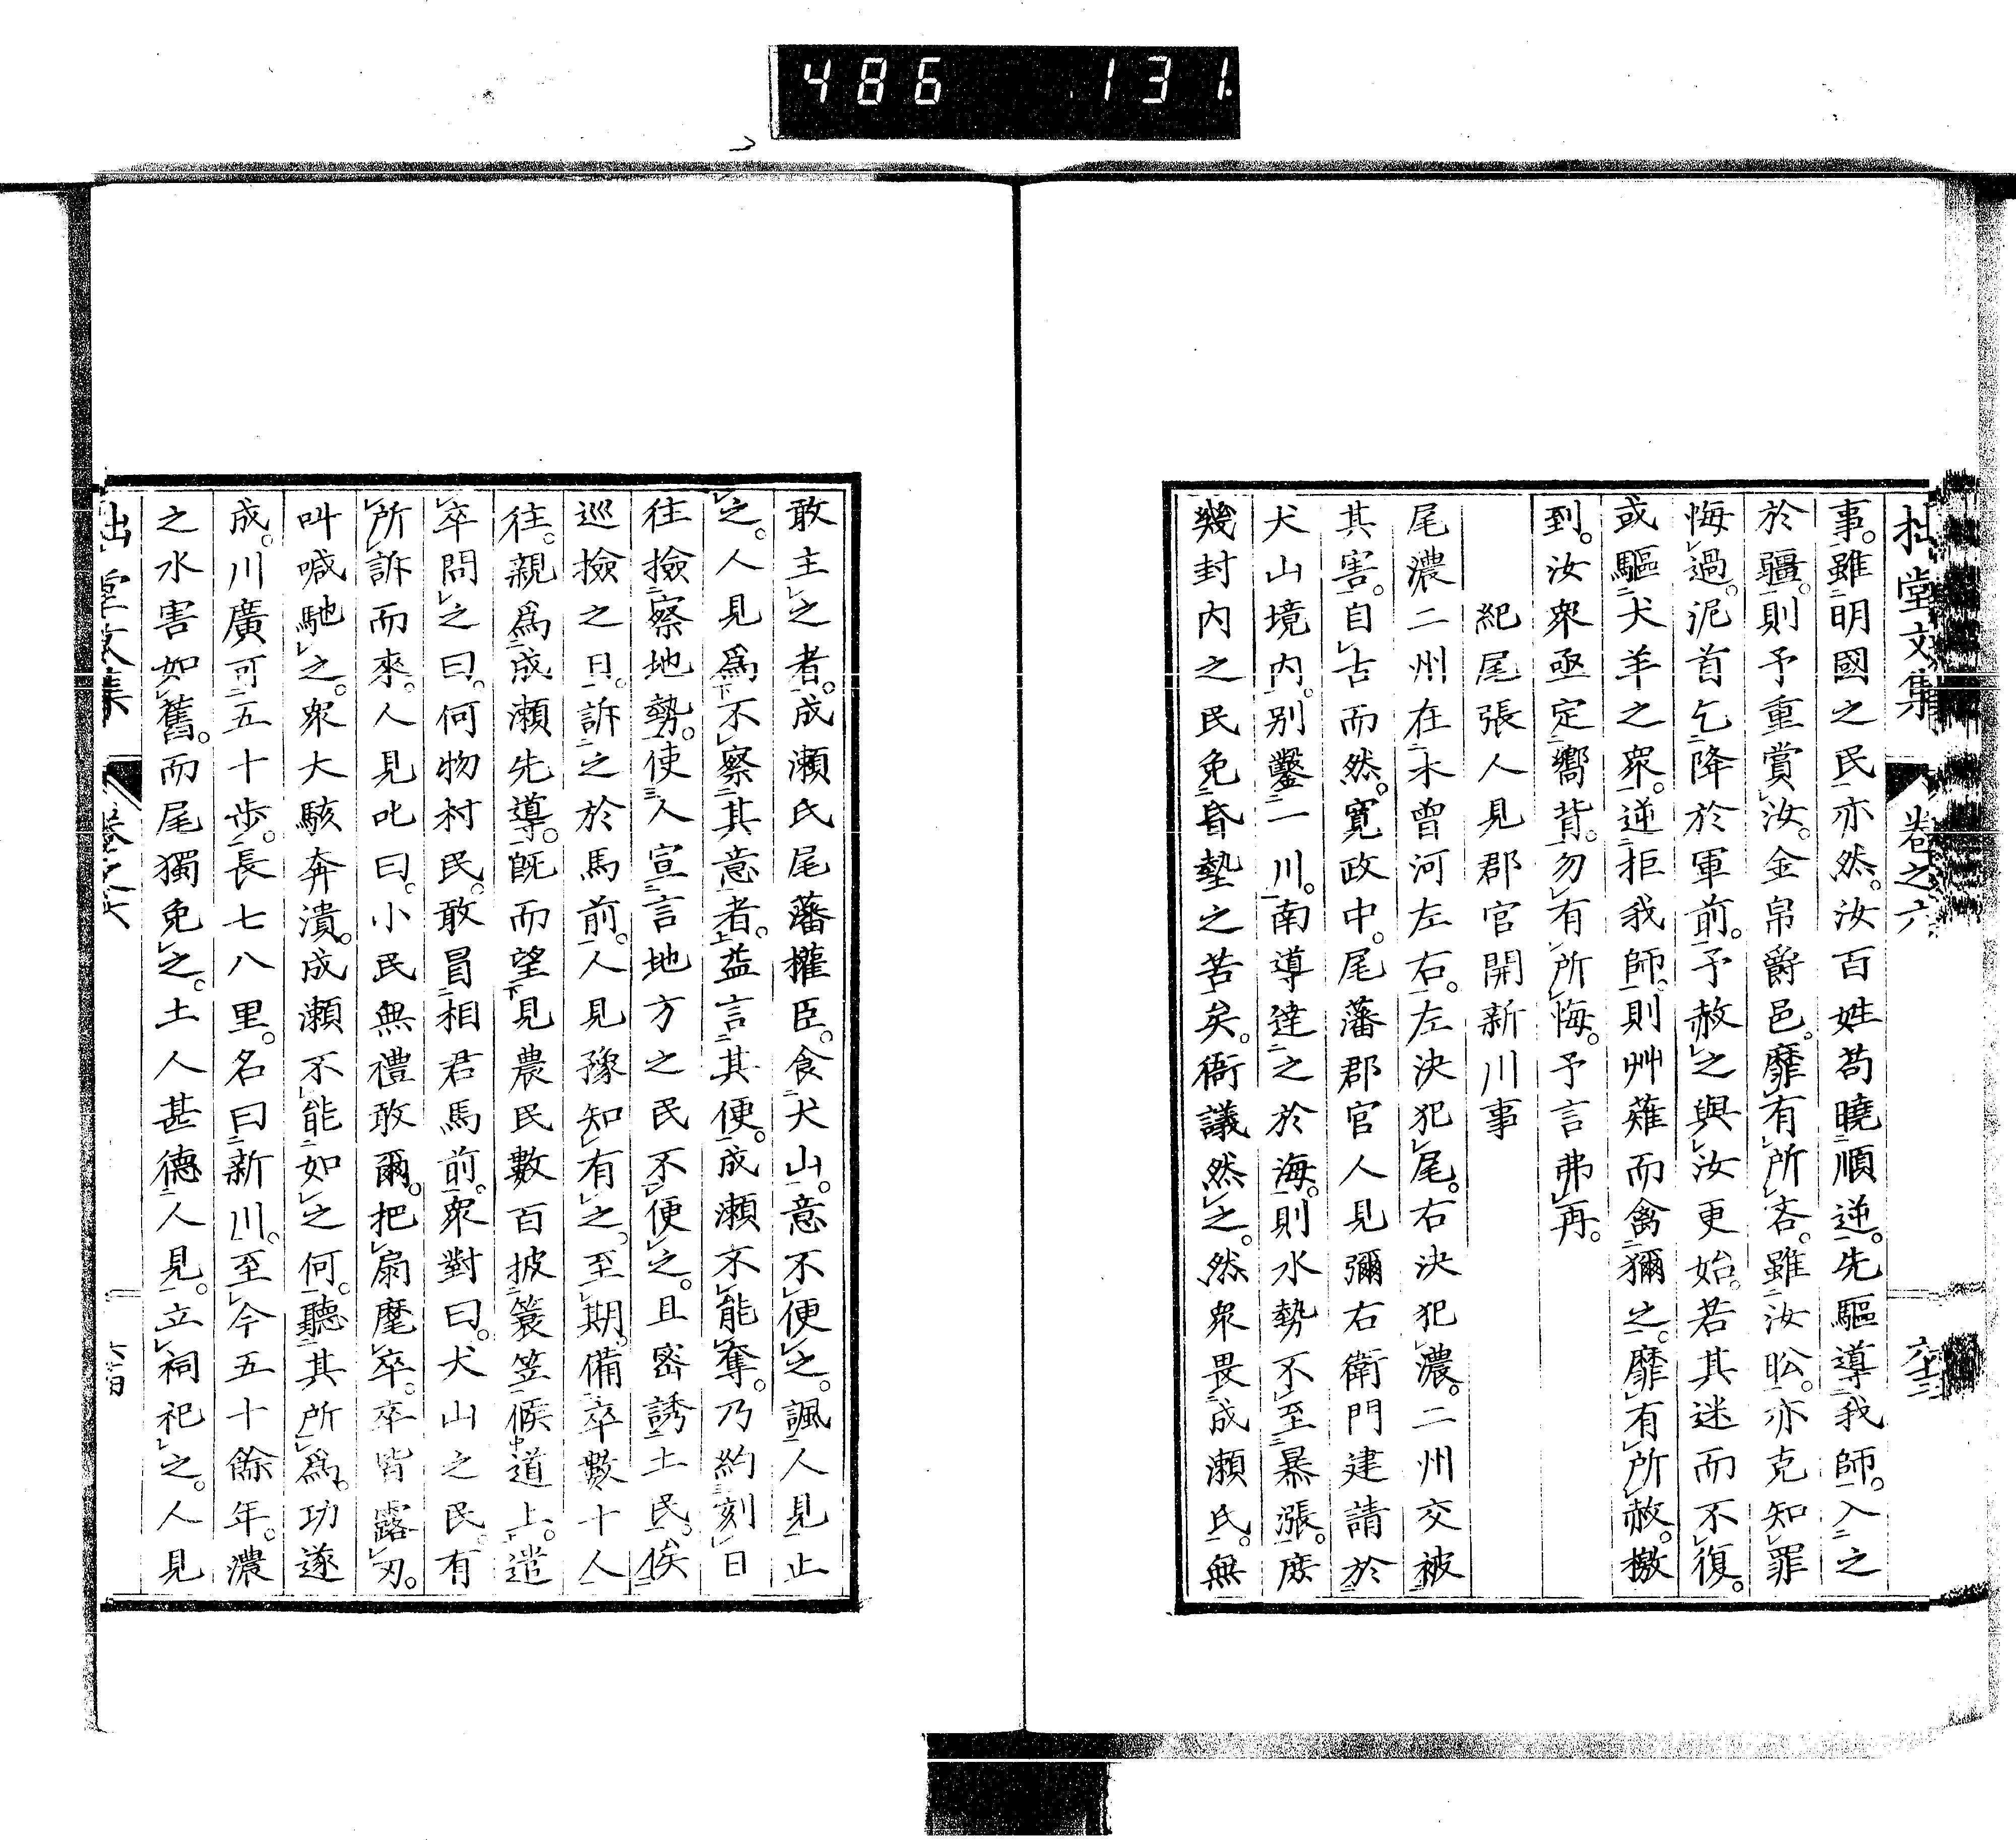 486 131
拙堂文集 卷之六 六十三
事。雖明國之民亦然。汝百姓苟曉順逆。先驅導我師。入之
於疆。則予重賞汝。金帛爵邑。靡有所吝。雖汝訟。亦克知罪
悔過。泥首乞降於軍前。予赦之與汝更始。若其迷而不復。
或驅犬羊之衆。逆拒我師。則艸薙而禽獮之。靡有所赦。檄
到。汝衆亟定嚮背。勿有所悔。予言弗再。
紀尾張人見郡官開新川事
尾濃二州在木曾河左右。左決犯尾。右決犯濃。二州交被
其害。自古而然。寬政中。尾藩郡官人見彌右衛門建請於
犬山境內。別鑿一川。南導達之於海。則水勢不至暴漲。庶
幾封內之民免昏墊之苦矣。衙議然之。然衆畏成瀨氏。無
敢主之者。成瀨氏尾藩權臣。食犬山。意不便之。諷人見止
之。人見爲不察其意者。益言其便。成瀨不能奪。乃約刻日
往撿察地勢。使人宣言地方之民不便之。且密誘土民。俟
巡撿之日。訴之於馬前。人見豫知有之。至期。備卒數十人
往。親爲成瀨先導。旣而望見農民數百披簑笠候道上。遣
卒問之曰。何物村民。敢冒相君馬前。衆對曰。犬山之民。有
所訴而來。人見叱曰。小民無禮敢爾。把扇麾卒。卒皆露刃。
叫喊馳之。衆大駭奔潰。成瀨不能如之何。聽其所爲。功遂
成。川廣可五十步。長七八里。名曰新川。至今五十餘年。濃
之水害如舊。而尾獨免之。土人甚德人見。立祠祀之。人見
拙堂文集 卷之六